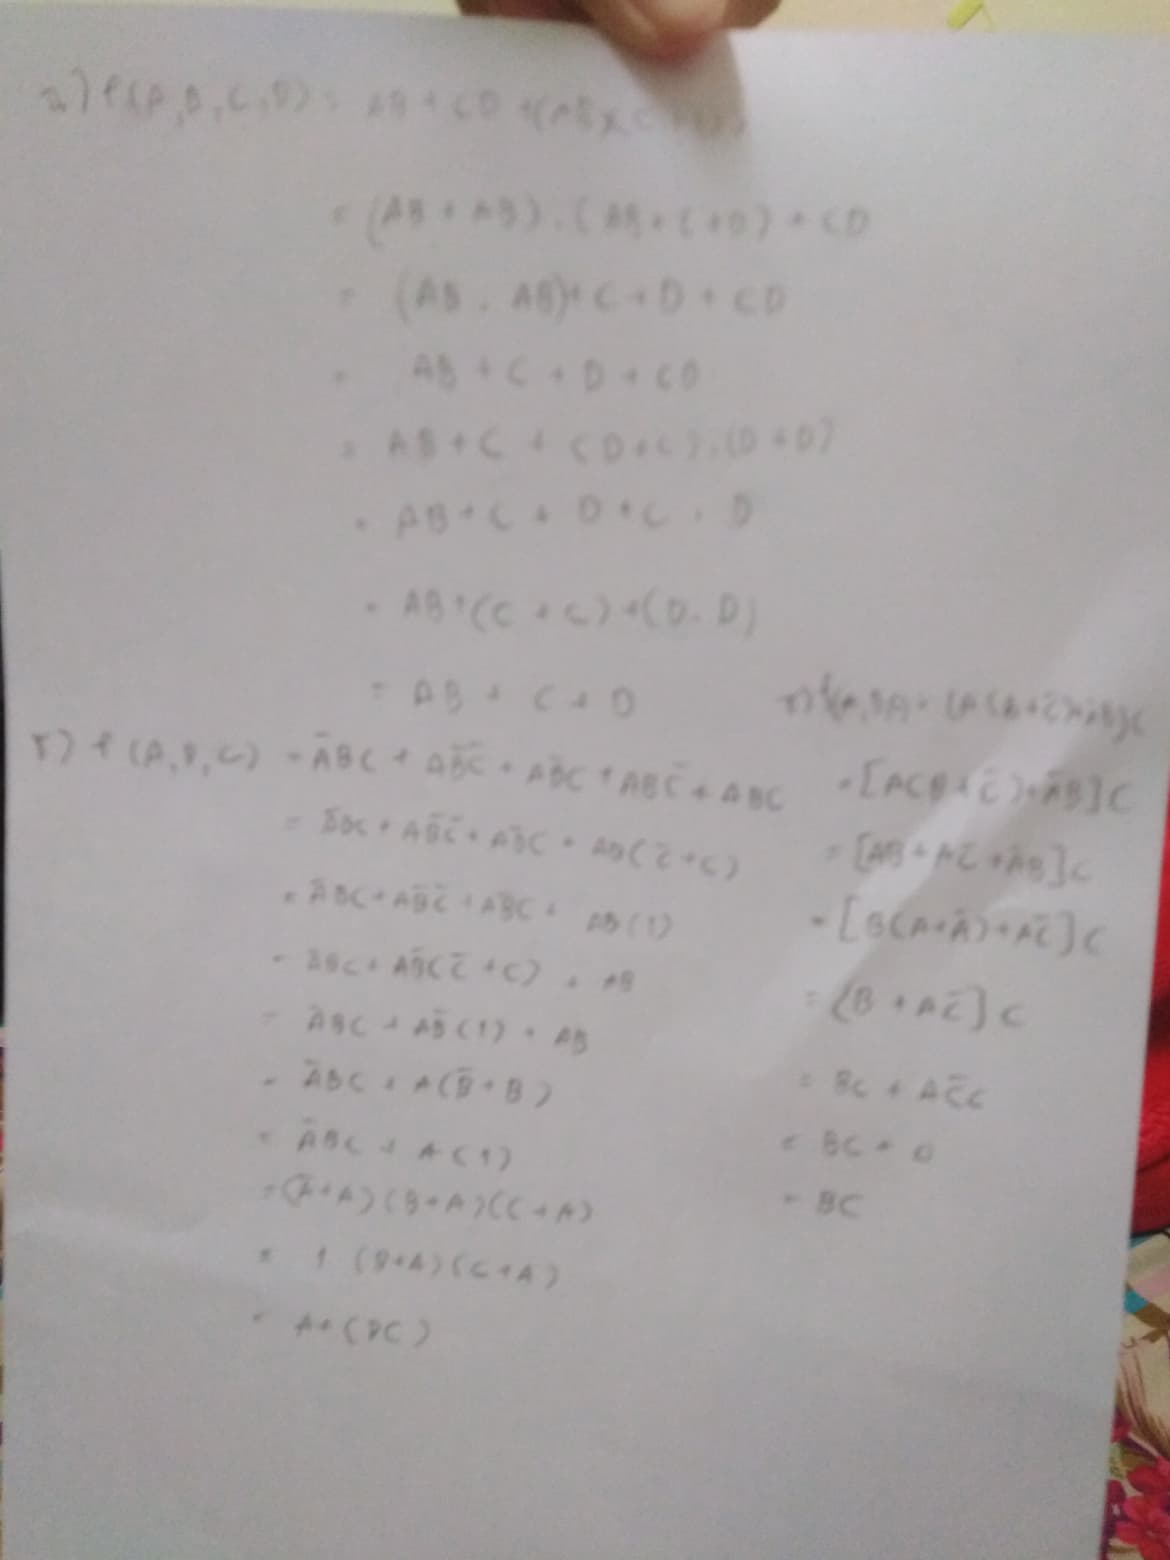 f(A,B,C,D) = AB + CD
= (AB + AB) . (AB + C + D) + CD
= (AB . AB) + C + D + CD
= AB + C + D + CD
= AB + C + (D + C) . (D + D)
= AB + C + D + C . D
= AB + (C + C) + (D . D)
= AB + C + D
f(A,B,C) = A̅BC + AB̅C̅ + AB̅C + ABC̅ + ABC
= A̅BC + AB̅C̅ + AB̅C + AB(C̅+C)
= A̅BC + AB̅C̅ + AB̅C + AB(1)
= A̅BC + AB̅(C̅+C) + AB
= A̅BC + AB̅(1) + AB
= A̅BC + A(B̅+B)
= A̅BC + A(1)
= (A̅+A)(B+A)(C+A)
= 1 (B+A)(C+A)
= A+(BC)
= [A(B+C̅)+A̅B]C
= [AB+AC̅+A̅B]C
= [B(A+A̅)+AC̅]C
= [B + AC̅]C
= BC + AC̅C
= BC + 0
= BC